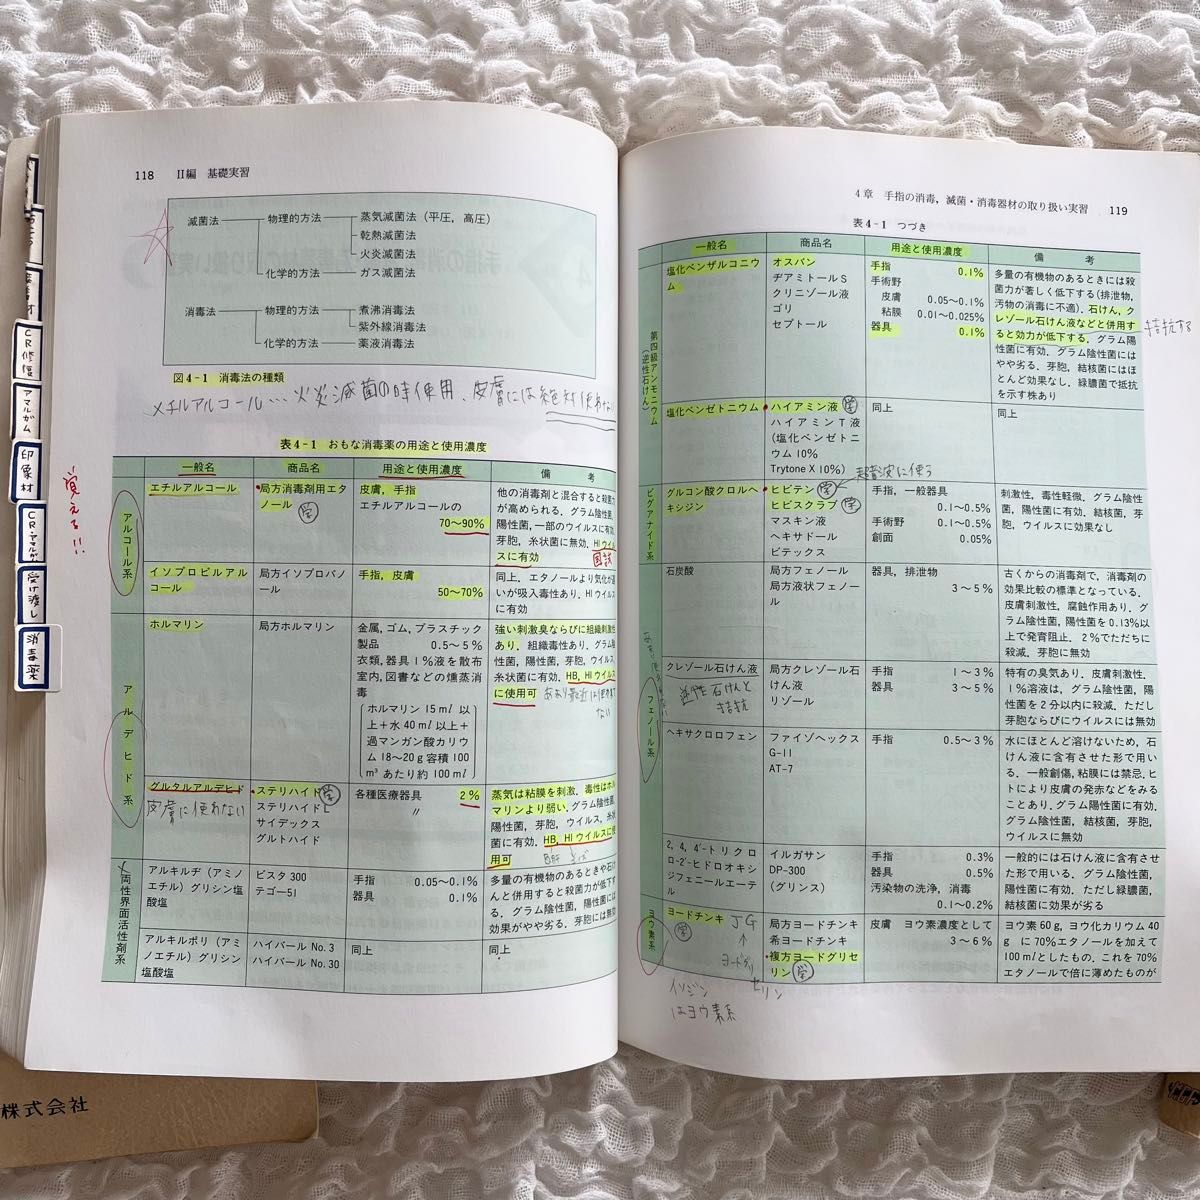 118 II編 基礎実習
滅菌法 物理的方法 蒸気滅菌法（平圧，高圧）
乾熱滅菌法
火炎滅菌法
化学的方法 ガス滅菌法
消毒法 物理的方法 煮沸消毒法
紫外線消毒法
化学的方法 薬液消毒法
図4-1 消毒法の種類
メチルアルコール…火炎滅菌の時使用、皮膚には絶対使わない
表4-1 おもな消毒薬の用途と使用濃度
一般名 商品名 用途と使用濃度 備 考
アルコール系
エチルアルコール
局方消毒剤用エタ
ノール 学
皮膚，手指
エチルアルコールの
70～90％
他の消毒剤と混合すると殺菌
が高められる．グラム陰性菌，
陽性菌，一部のウイルスに有効
芽胞，糸状菌に無効．HIウイル
スに有効 国試
イソプロピルアル
コール
局方イソプロパノ
ール
手指，皮膚
50～70％
同上．エタノールより気化が
いが吸入毒性あり．HIウイルス
に有効
アルデヒド系
ホルマリン
局方ホルマリン
金属，ゴム，プラスチック
製品 0.5～5％
衣類，器具1％液を散布
室内，図書などの燻蒸消
毒
ホルマリン15ml以
上＋水40ml以上＋
過マンガン酸カリウ
ム18～20g容積100
m³あたり約100ml
強い刺激臭ならびに組織刺激性
あり．組織毒性あり．グラム陰
性菌，陽性菌，芽胞，ウイルス，
糸状菌に有効．HB，HIウイルス
に使用可 あまり最近は使われ
ない
グルタルアルデヒド
皮膚に使わない
ステリハイド 学
ステリハイドL
サイデックス
グルトハイド
各種医療器具 2％
〃
蒸気は粘膜を刺激．毒性はホル
マリンより弱い．グラム陰性菌，
陽性菌，芽胞，ウイルス，糸状
菌に有効．HB，HIウイルスに使
用可 B肝
両性界面活性剤系
アルキルヂ（アミノ
エチル）グリシン塩
酸塩
ビスタ300
テゴー51
手指 0.05～0.1％
器具 0.1％
多量の有機物のあるときや石け
んと併用すると殺菌力が低下す
る．グラム陰性菌，陽性菌には
効果がやや劣る．芽胞には無効
アルキルポリ（アミ
ノエチル）グリシン
塩酸塩
ハイパールNo.3
ハイパールNo.30
同上
同上
覚える!!
CR修復
アマルガム
印象材
CR・アマルガム
受け渡し
消毒薬
株式会社
4章 手指の消毒，滅菌・消毒器材の取り扱い実習 119
表4-1 つづき
一般名 商品名 用途と使用濃度 備 考
第四級アンモニウム
（逆性石けん）
塩化ベンザルコニウ
ム
オスバン
ヂアミトールS
クリニゾール液
ゴリ
セプトール
手指 0.1％
手術野
皮膚 0.05～0.1％
粘膜 0.01～0.025％
器具 0.1％
多量の有機物のあるときには殺
菌力が著しく低下する（排泄物，
汚物の消毒に不適）．石けん，ク
レゾール石けん液などと併用す
ると効力が低下する．グラム陽
性菌に有効．グラム陰性菌には
やや劣る．芽胞，結核菌にはほ
とんど効果なし．緑濃菌で抵抗
を示す株あり
拮抗する
塩化ベンゼトニウム
ハイアミン液 学
ハイアミンT液
（塩化ベンゼトニ
ウム10％
Trytone X 10％）
同上
同上
超音波に使う
ビグアナイド系
グルコン酸クロルヘ
キシジン
ヒビテン 学
ヒビスクラブ 学
マスキン液
ヘキサドール
ビテックス
手指，一般器具
0.1～0.5％
手術野 0.1～0.5％
創面 0.05％
刺激性，毒性軽微．グラム陰性
菌，陽性菌に有効．結核菌，芽
胞，ウイルスに効果なし
フェノール系
石炭酸
局方フェノール
局方液状フェノー
ル
器具，排泄物
3～5％
古くからの消毒剤で，消毒剤の
効果比較の標準となっている．
皮膚刺激性，腐蝕作用あり．グ
ラム陰性菌，陽性菌を0.13％以
上で発育阻止．2％でただちに
殺滅．芽胞に無効
クレゾール石けん液
逆性石けんと
拮抗
局方クレゾール石
けん液
リゾール
手指 1～3％
器具 3～5％
特有の臭気あり．皮膚刺激性．
1％溶液は，グラム陰性菌，陽
性菌を2分以内に殺滅．ただし
芽胞ならびにウイルスには無効
ヘキサクロロフェン
ファイゾヘックス
G-11
AT-7
手指 0.5～3％
水にほとんど溶けないため，石
けん液に含有させた形で用い
る．一般創傷，粘膜には禁忌．ヒ
トにより皮膚の発赤などをみる
ことあり．グラム陽性菌に有効．
グラム陰性菌，結核菌，芽胞，
ウイルスに無効
2, 4, 4'-トリクロ
ロ-2'-ヒドロオキシ
ジフェニールエーテ
ル
イルガサン
DP-300
（グリンス）
手指 0.3％
器具 0.5％
汚染物の洗浄，消毒
0.1～0.2％
一般的には石けん液に含有させ
た形で用いる．グラム陰性菌，
陽性菌に有効．ただし緑濃菌，
結核菌に効果が劣る
ヨウ素系
ヨードチンキ JG
学 ↑
ヨードグリ
セリン
局方ヨードチンキ
希ヨードチンキ
複方ヨードグリセ
リン 学
皮膚 ヨウ素濃度として
3～6％
ヨウ素60g，ヨウ化カリウム40
gに70％エタノールを加えて
100mlとしたもの．これを70％
エタノールで倍に薄めたものが
イソジン
はヨウ素系